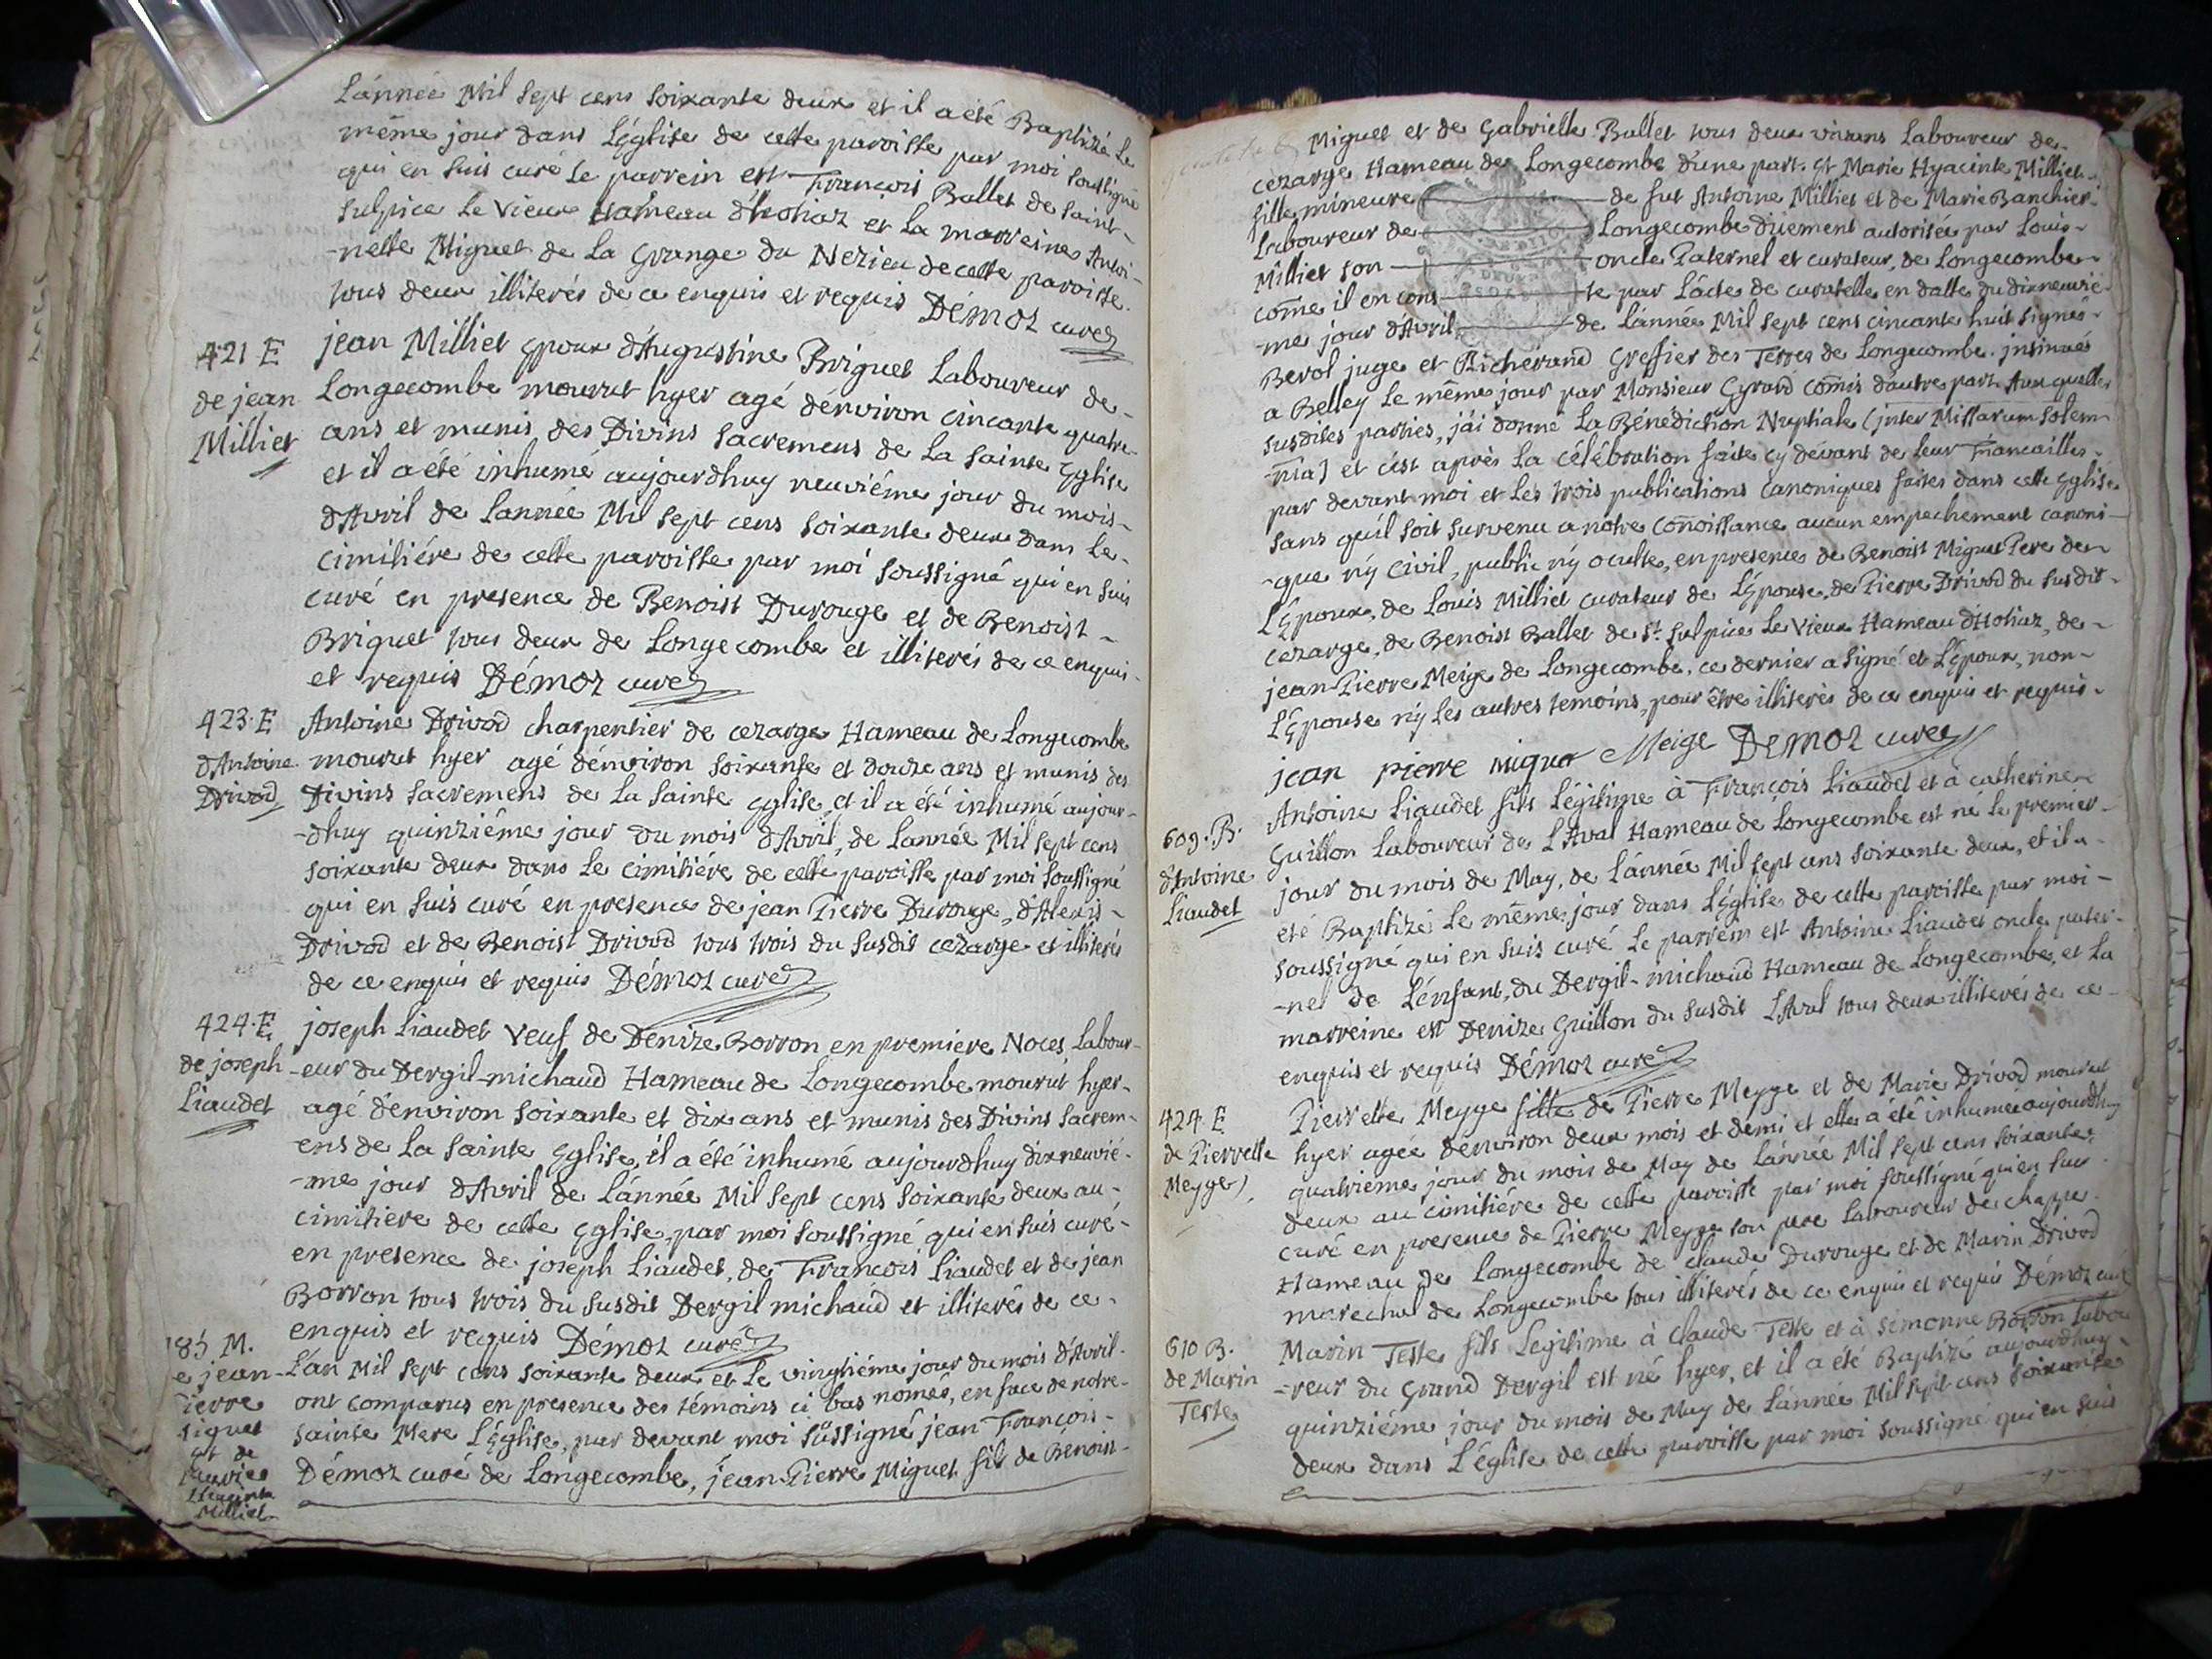 L'année Mil sept cens soixante deux et il a été Baptizé Le
même jour dans L'Eglise de cette paroisse par moi soussigné
qui en suis curé Le parrein est François Ballet de saint-
sulpice Le vieux Hameau d'hotiaz et La marreine Antoi-
-nette Miguet de La Grange du Nezieu de cette paroisse.
tous deux illiterés de ce enquis et requis Démoz curé
421 E
de jean
Milliet
jean Milliet Epoux d'Augustine Briguet Laboureur de-
Longecombe mourut hyer agé d'énviron cincante quatre
ans et munis des Divins sacremens de La sainte Eglise
et il a été inhumé aujourdhuy neuviéme jour du mois-
d'Avril de L'année Mil sept cens soixante deux dans Le-
cimitiére de cette paroisse par moi soussigné qui en suis
curé en presence de Benoist Durouge et de Benoist-
Briguet tous deux de Longecombe et illiterés de ce enquis-
et requis Démoz curé
423. E
d'Antoine
Drivod
Antoine Drivod charpentier de cezarge Hameau de Longecombe
mourut hyer agé d'énviron soixante et douze ans et munis des
Divins sacremens de La sainte Eglise, et il a été inhumé aujour-
-dhuy quinziéme jour du mois d'Avril, de L'année Mil sept cens
soixante deux dans Le cimitiére de cette paroisse par moi soussigné
qui en suis curé en presence de jean Pierre Durouge, d'Alexis-
Drivod et de Benoist Drivod tous trois du susdit cezarge et illiterés
de ce enquis et requis Démoz curé
424. E
de joseph
Liaudet
joseph Liaudet Veuf de Denize Borron en premiere Noces Labour-
-eur du Dergil-michaud Hameau de Longecombe mourut hyer-
agé d'énviron soixante et dix ans et munis des Divins sacrem-
ens de La sainte Eglise, il a été inhumé aujourdhuy dixneuvié-
-me jour d'Avril de L'année Mil sept cens soixante deux au-
cimitiere de cette Eglise, par moi soussigné qui en suis curé-
en presence de joseph Liaudet, de François Liaudet et de jean
Borron tous trois du susdit Dergil michaud et illiterés de ce-
enquis et requis Démoz curé
185 M.
e jean-
ierre
iguet
et de
Marie
Hyacinte
Milliet
L'an Mil sept cens soixante deux et Le vingtiéme jour du mois d'Avril-
ont comparus en presence des témoins ci bas només, en face de notre-
sainte Mere L'Eglise, par devant moi sussigné jean François-
Démoz curé de Longecombe, jean-Pierre Miguet fils de Benoist-
Miguet et de Gabrielle Ballet tous deux vivans Laboureur de-
cezarge Hameau de Longecombe d'une part. et Marie Hyacinte Milliet-
fille mineure de fut Antoine Milliet et de Marie Banchier-
Laboureur de Longecombe diiement autorisée par Louis-
Milliet son oncle Paternel et curateur, de Longecombe
come il en cons te par L'acte de curatelle en datte du dixneuvié-
-me jour d'Avril de L'année Mil sept cens cincante huit signés-
Berol juge et Richerand Greffier des Terres de Longecombe. insinués
a Belley Le même jour par Monsieur Gyrard comis d'autre part. Aux quelles
susdites parties, j'ai donné La Bénédiction Nuptiale (inter Missarum solem-
-nia) et c'est aprés La célébration faite cy dévant de leur Fiancailles-
par devant moi et Les trois publications canoniques faites dans cette Eglise
sans qu'il soit survenu a notre conoissance aucun empechement canoni-
-que n'y civil, public n'y oculte, en presence de Benoist Miguet Pere de
L'Epoux, de Louis Milliet curateur de L'Epouse, de Pierre Drivod du susdit-
cezarge, de Benoist Ballet de St. sulpice Le vieux Hameau d'Hotiaz, de-
jean-Pierre Meige de Longecombe. ce dernier a signé et L'Epoux, non-
L'Epouse n'y Les autres temoins, pour être illiterés de ce enquis et requis.
jean pierre miguet Meige Démoz curé
609. B.
d'Antoine
Liaudet
Antoine Liaudet fils Légitime à François Liaudet et à catherine
Guillon Laboureur de L'Aval Hameau de Longecombe est né Le premier-
jour du mois de May, de L'année Mil sept cens soixante deux, et il a-
eté Baptizé Le même jour dans L'Eglise de cette paroisse par moi-
soussigné qui en suis curé Le parrein est Antoine Liaudet oncle pater-
-nel de L'énfant, du Dergil-michaud Hameau de Longecombe, et La
marreine est Denize Guillon du susdit L'Aval tous deux illiterés de ce-
enquis et requis Démoz curé
424. E
de Pierrette
Meyge
Pierrette Meyge fille de Pierre Meyge et de Marie Drivod mourut
hyer agée d'énviron deux mois et demi et elle a été inhumée aujourdhuy
quatriéme jour du mois de May de L'année Mil sept cens soixante
deux au cimitiére de cette paroisse par moi soussigné qui en suis
curé en presence de Pierre Meyge son pere Laboureur de chappe
Hameau de Longecombe de claude Durouge et de Marin Drivod
marechal de Longecombe tous illiterés de ce enquis et requis Démoz curé
610 B.
de Marin
Teste
Marin Teste fils Legitime à claude Teste et à simonne Borron Labou
-reur du Grand Dergil est né hyer, et il a été Baptizé aujourdhuy-
quinziéme jour du mois de May de L'année Mil sept cens soixante
deux dans L'église de cette paroisse par moi soussigné qui en suis